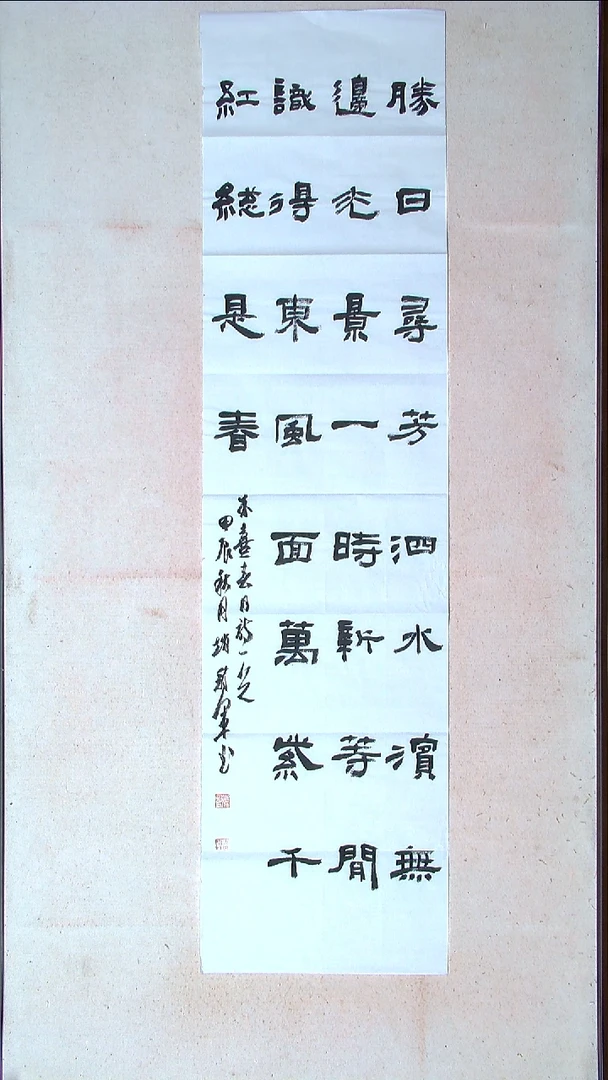 勝日尋芳泗水濱無
邊光景一時新等閒
識得東風面萬紫千
紅總是春
朱熹春日詩一首
甲辰秋月